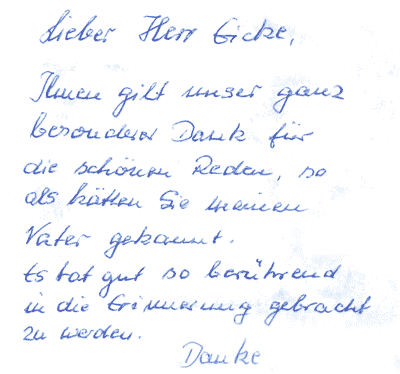 Lieber Herr Eicke,
Ihnen gilt unser ganz
besonderer Dank für
die schönen Reden, so
als hätten Sie meinen
Vater gekannt.
Es tat gut so berührend
in die Erinnerung gebracht
zu werden.
Danke